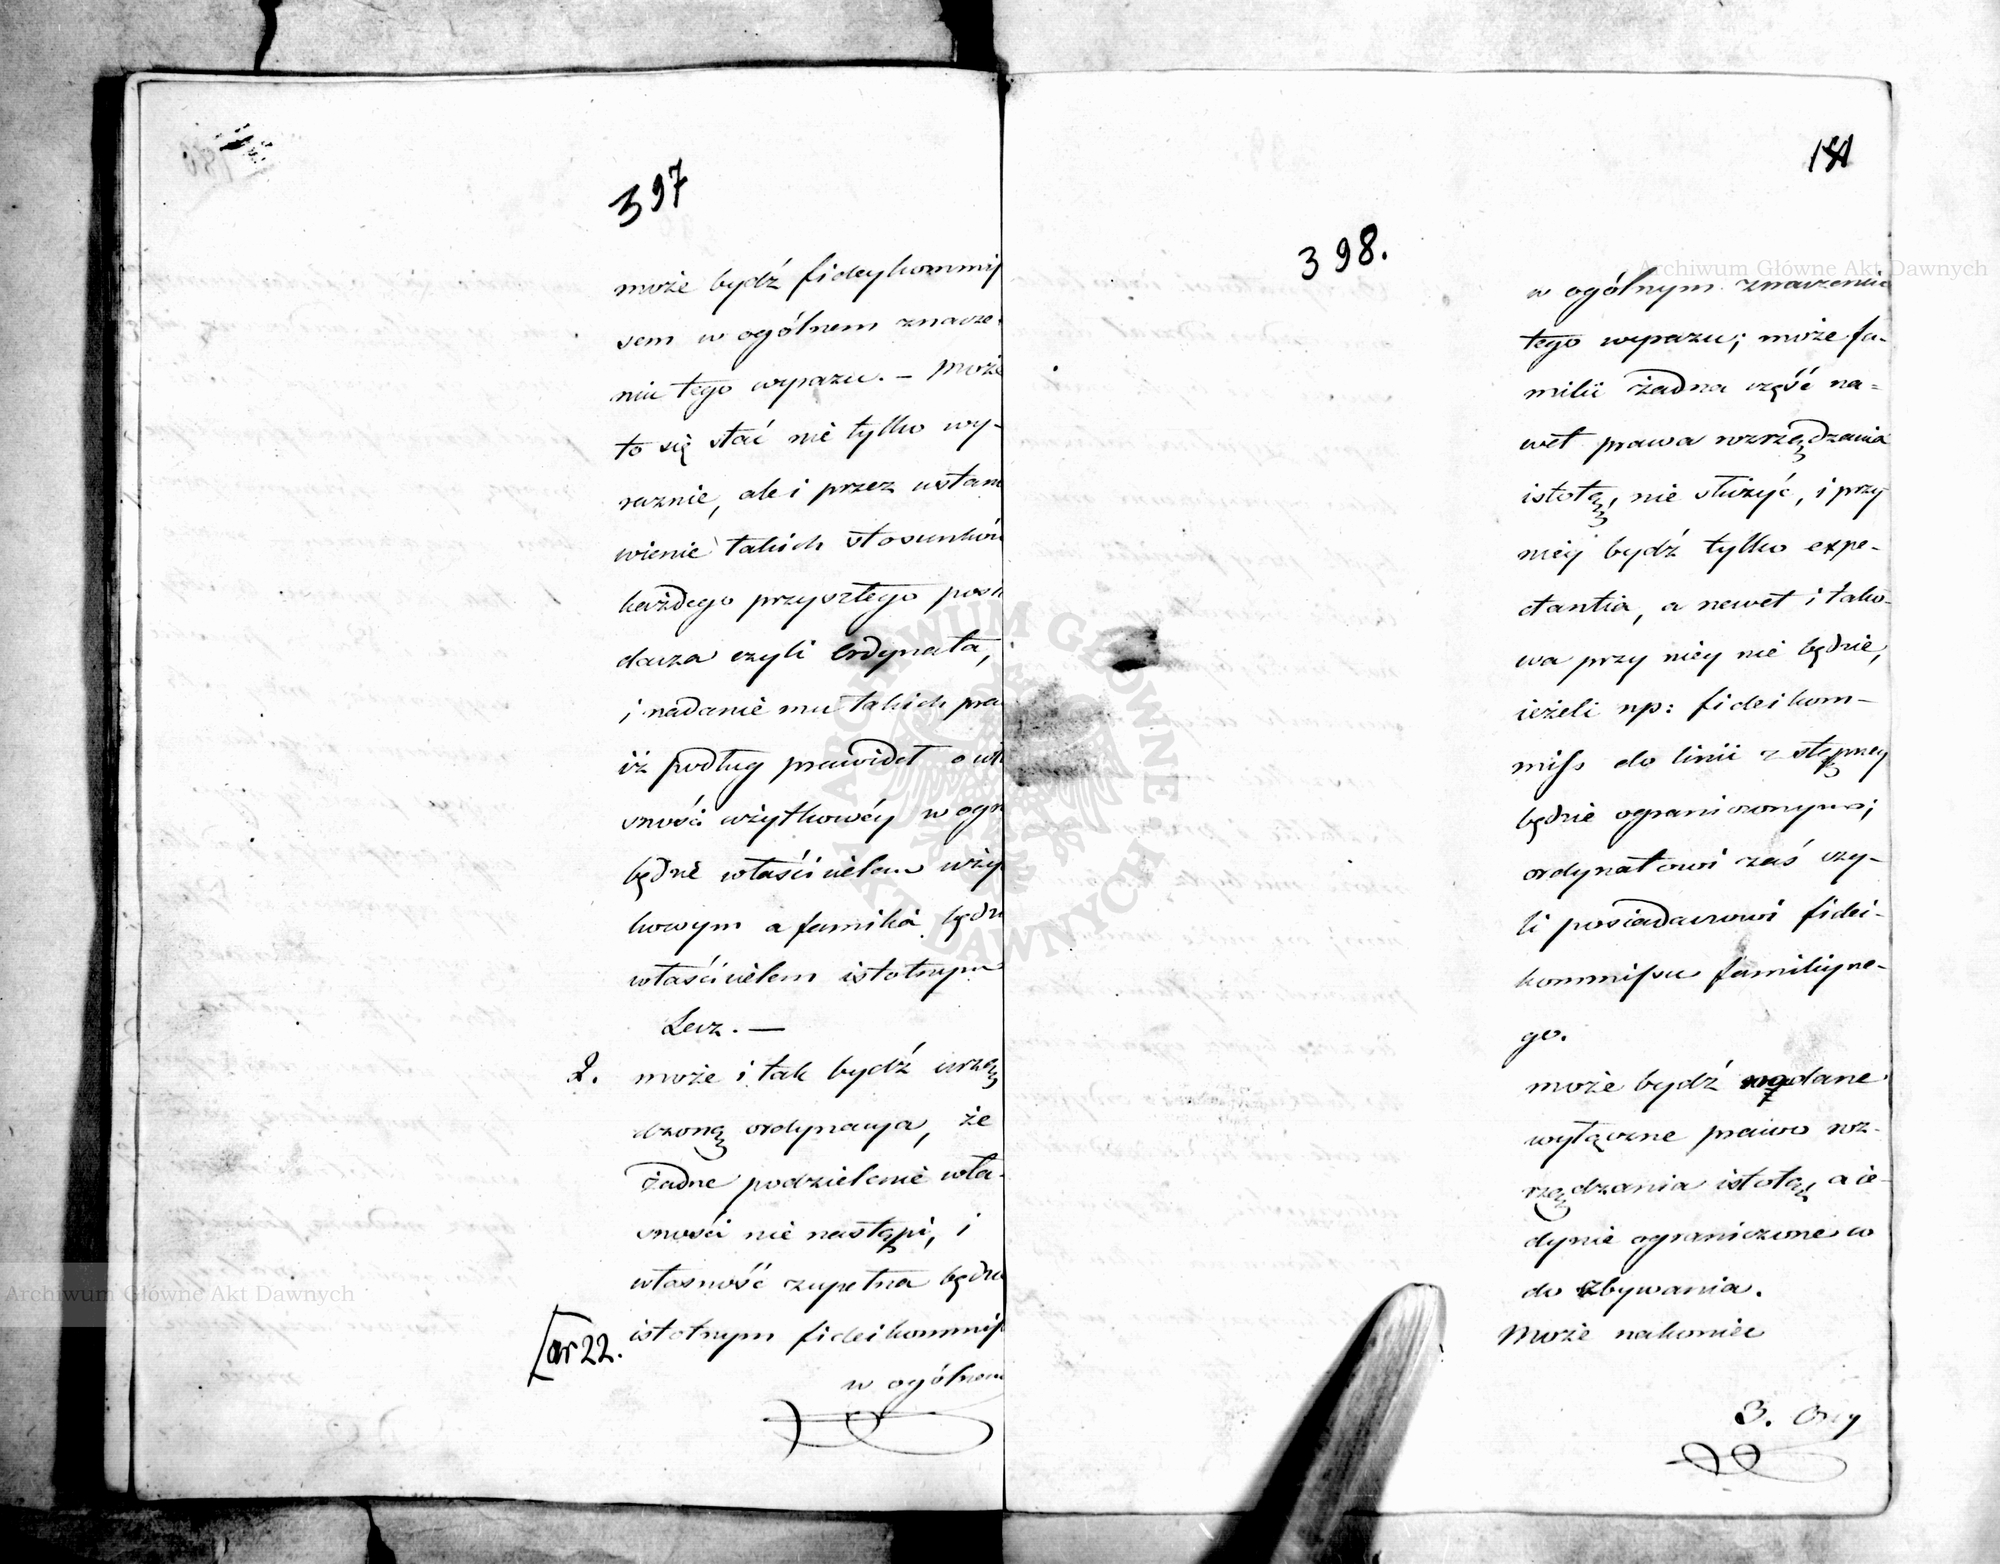 397
może bydź fideykommis
sem w ogólnem znacze-
niu tego wyrazu. — Może
to się stać nie tylko wy-
raznie, ale i przez ustano
wienie takich stosunków
każdego przyszłego posia
dacza czyli Ordynata,
i nadanie mu takich pra
iż podług prawideł o wła
sności użytkowéy w ogn
będzie właścicielem uży
kowym a familia będzie
właścicielem istotnym
Lecz. —
2. może i tak bydź urzą
dzoną ordynacya, że
żadne podzielenie wła-
sności nie nastąpi, i
własność zupełna będzie
ar 22. istotnym fideikommis
w ogólnem
181
398.
w ogólnym znaczeniu
tego wyrazu; może fa-
milii żadna część na-
wet prawa rozrządzania
istotą, nie służyć, i przy
niey bydź tylko expe-
ctantia, a nawet i tako-
wa przy niey nie będzie,
ieżeli np: fideikom-
miss do linii zstępney
będzie ograniczonym;
ordynatowi zaś czy-
li posiadaczowi fidei-
kommissu familiyne-
go.
może bydź nadane
wyłączne prawo roz-
rządzania istotą, a ie-
dynie ograniczone co
do zbywania.
Może nakoniec
3. Ony
Archiwum Główne Akt Dawnych
Archiwum Główne Akt Dawnych
ARCHIWUM GŁÓWNE AKT DAWNYCH